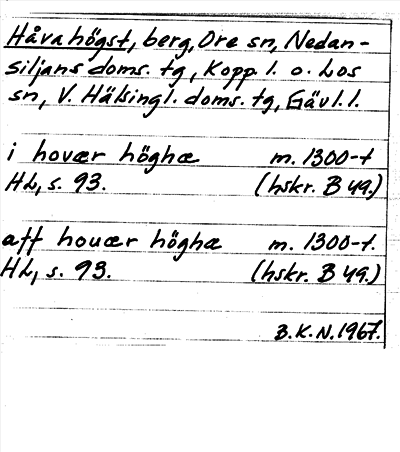 Håvahögst, berg, Ore sn, Nedan-
siljans doms. tg, Kopp. l. o. Los
sn, V. Hälsingl. doms. tg, Gävl. l.
i hovær höghæ m. 1300-t
HL, s. 93. (hskr. B 49.)
aff houær höghæ m. 1300-t.
HL, s. 93. (hskr. B 49.)
B.K.N. 1967.